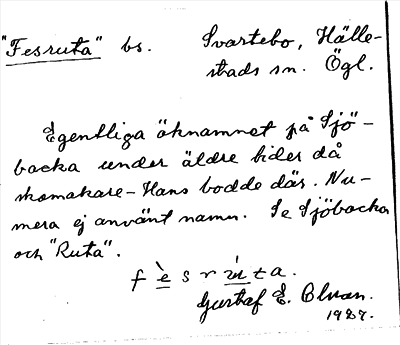 "Fesruta" bs. Svartebo, Hälle-
stads sn. Ögl.
Egentliga öknamnet på Sjö-
backa under äldre tider då
skomakare-Hans bodde där. Nu-
mera ej använt namn. Se Sjöbacka
och "Ruta".
fèsrúta.
Gustaf E. Olman.
1927.